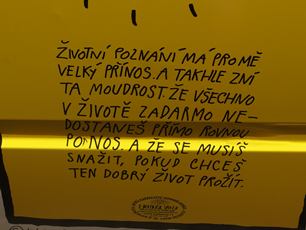 ŽIVOTNÍ POZNÁNÍ MÁ PRO MĚ
VELKÝ PŘÍNOS. A TAKHLE ZNÍ
TA MOUDROST: ŽE VŠECHNO
V ŽIVOTĚ ZADARMO NE-
DOSTANEŠ PŘÍMO ROVNOU
POD NOS. A ŽE SE MUSÍŠ
SNAŽIT, POKUD CHCEŠ
TEN DOBRÝ ŽIVOT PROŽÍT.